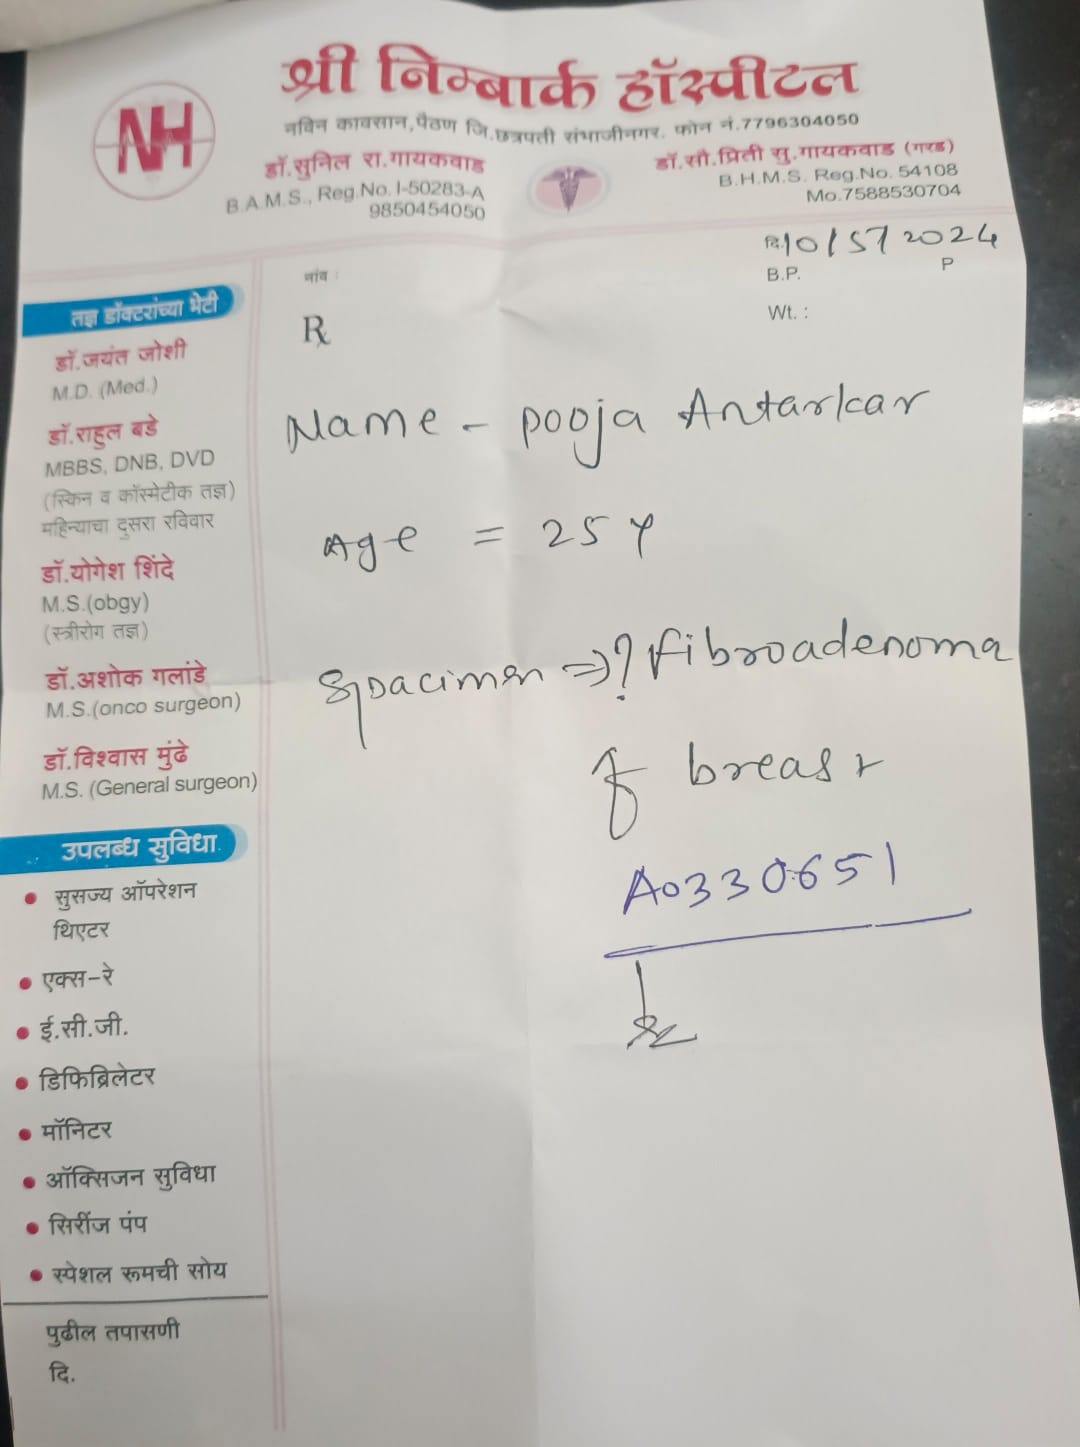 NH
श्री निम्बार्क हॉस्पीटल
नविन कावसान,पैठण जि.छत्रपती संभाजीनगर. फोन नं.7796304050
डॉ.सुनिल रा.गायकवाड
B.A.M.S., Reg.No. I-50283-A
9850454050
डॉ.सौ.प्रिती सु.गायकवाड (गरड)
B.H.M.S. Reg.No. 54108
Mo.7588530704
दि.10/5/2024
नांव :
B.P.
P
Wt. :
℞
तज्ञ डॉक्टरांच्या भेटी
डॉ.जयंत जोशी
M.D. (Med.)
डॉ.राहुल बडे
MBBS, DNB, DVD
(स्किन व कॉस्मेटीक तज्ञ)
महिन्याचा दुसरा रविवार
डॉ.योगेश शिंदे
M.S.(obgy)
(स्त्रीरोग तज्ञ)
डॉ.अशोक गलांडे
M.S.(onco surgeon)
डॉ.विश्वास मुंढे
M.S. (General surgeon)
उपलब्ध सुविधा
• सुसज्य ऑपरेशन
थिएटर
• एक्स-रे
• ई.सी.जी.
• डिफिब्रिलेटर
• मॉनिटर
• ऑक्सिजन सुविधा
• सिरींज पंप
• स्पेशल रूमची सोय
पुढील तपासणी
दि.
Name - Pooja Antarkar
Age = 25 Y
Spacimen => ? Fibroadenoma
of breast
A0330651